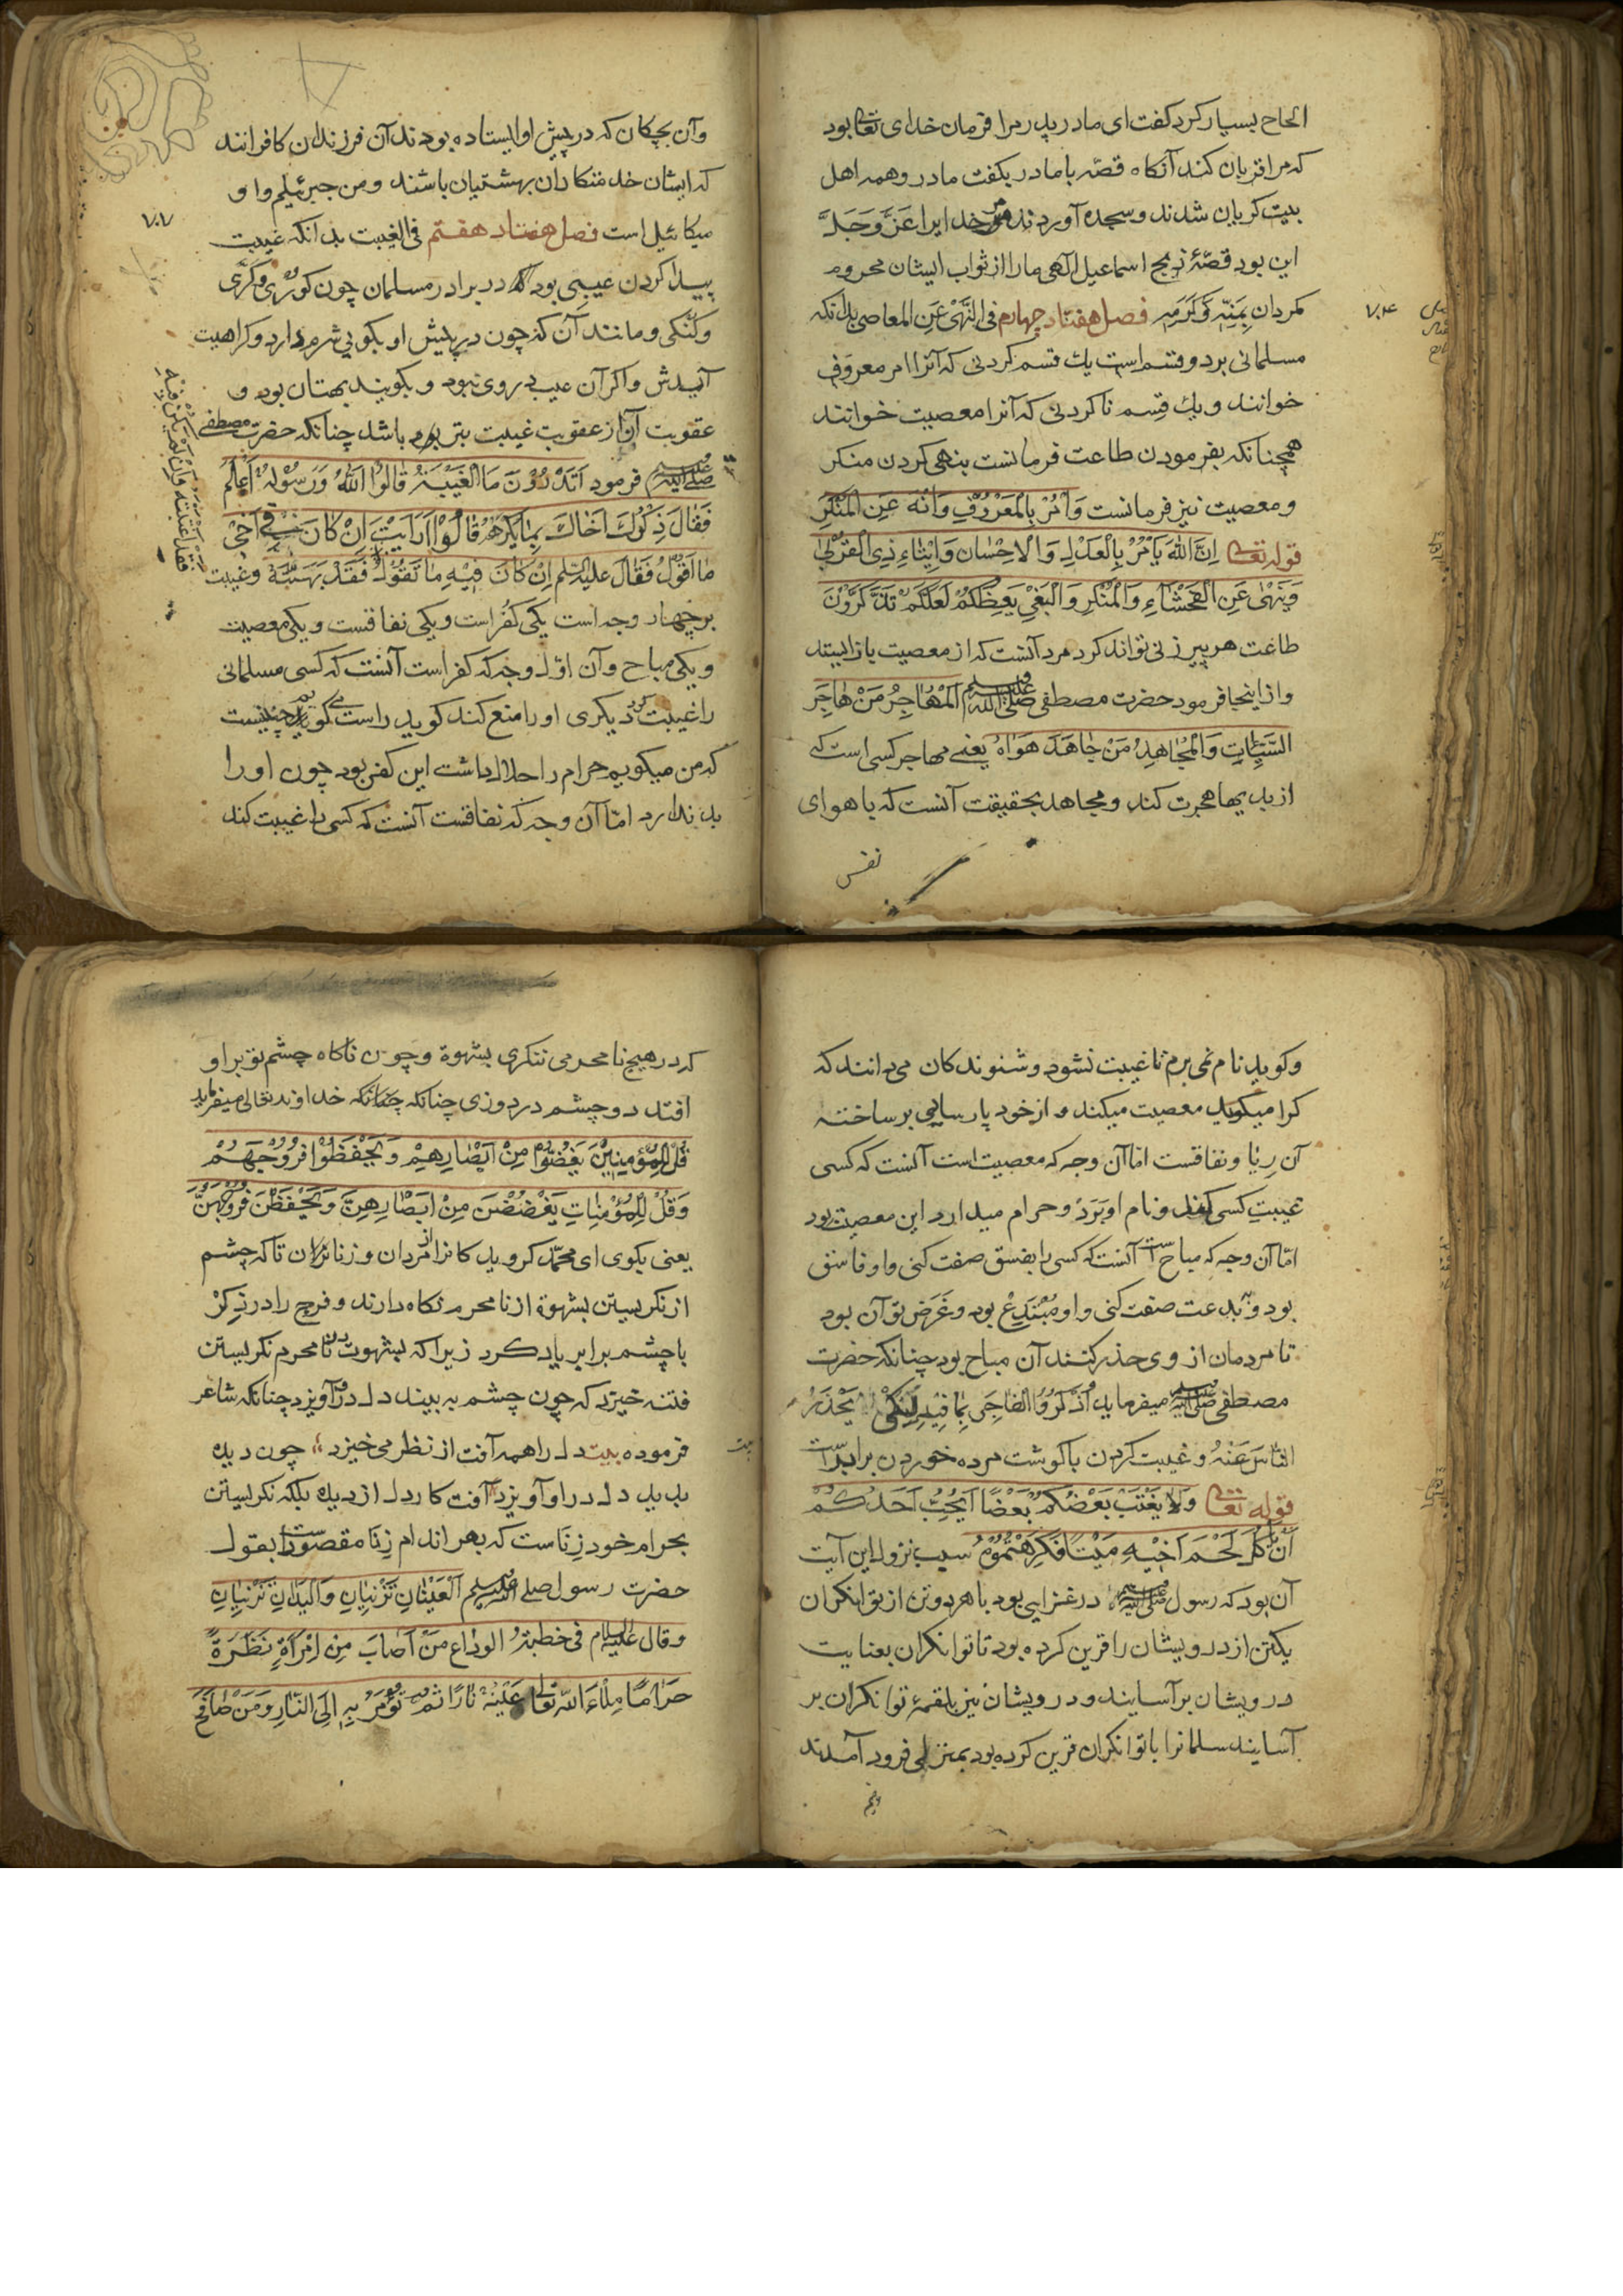 الحاح بسیار کرد کفت ای مادر پدر مرا فرمان خدای تعالی بود
که مرا قربان کند آنکاه قصّه با مادر بکفت مادر و همه اهل
بیت کریان شدند و سجده آوردند مر خدایرا عَزَّ وَجَلَّ
این بود قصّهٔ ذبح اسماعیل الهی ما را از ثواب ایشان محروم
مکردان بِمَنِّهِ وَکَرَمِهِ فصل هفتاد چهارم فی النَّهْیِ عَنِ المعاصی بدانکه
۷۰۴
مسلمانی بر دو قسم است یك قسم کردنی که آنرا امر معروف
خوانند و یك قسم ناکردنی که آنرا معصیت خوانند
همچنانکه بفرمودن طاعت فرمانست بنهی کردن منکر
و معصیت نیز فرمانست وَأْمُرْ بِالْمَعْرُوفِ وَانْهَ عَنِ الْمُنْکَرِ
قوله تعالی اِنَّ اللّٰهَ یَأْمُرُ بِالْعَدْلِ وَالْاِحْسٰانِ وَاِیْتٰاءِ ذِی الْقُرْبٰی
وَیَنْهٰی عَنِ الْفَحْشٰآءِ وَالْمُنْکَرِ وَالْبَغْیِ یَعِظُکُمْ لَعَلَّکُمْ تَذَکَّرُوْنَ
طاعت هر پیر زنی تواند کرد مرد آنست که از معصیت باز ایستد
و از اینجا فرمود حضرت مصطفی صلی الله علیه وسلم اَلْمُهٰاجِرُ مَنْ هٰاجَرَ
السَّیِّئٰاتِ وَالْمُجٰاهِدُ مَنْ جٰاهَدَ هَوٰاهُ یعنی مهاجر کسی است که
از بدیها هجرت کند و مجاهد بحقیقت آنست که با هوای
نفس
وآن بچکان که در پیش او ایستاده بودند آن فرزندان کافرانند
که ایشان خدمتکاران بهشتیان باشند و من جبرئیلم و او
میکائیل است فصل هفتاد هفتم فی الغیبت بدانکه غیبت
۷۰۷
پیدا کردن عیبی بود که در برادر مسلمان چون کوری و کرّی
و کنکی و مانند آن که چون در پیش او بکویی شرم دارد و کراهیت
آیدش و اکر آن عیب در وی نبود و بکویند بهتان بود و
عقوبت آن از عقوبت غیبت بتر باشد چنانکه حضرت مصطفی
صلی الله علیه وسلم فرمود اَتَدْرُوْنَ مَا الْغَیْبَةُ قٰالُوْا اَللّٰهُ وَرَسُوْلُهُ اَعْلَمُ
فَقٰالَ ذِکْرُكَ اَخٰاكَ بِمٰا یَکْرَهُ قٰالُوْا اَرَاَیْتَ اِنْ کٰانَ فِیْ اَخِیْ
مٰا اَقُوْلُ فَقٰالَ علیه السلام اِنْ کٰانَ فِیْهِ مٰا تَقُوْلُ فَقَدْ بَهَتَّهُ وغیبت
فقد اغتبته وان لم یکن فیه
بر چهار وجه است یکی کفر است و یکی نفاقست و یکی معصیت
و یکی مباح و آن اوّل وجه که کفر است آنست که کسی مسلمانی
را غیبت کرد دیکری او را منع کند کوید راست می کویم چنینست
که من میکویم حرام را حلال داشت این کفر بود چون او را
بد ندارد امّا آن وجه که نفاقست آنست که کسی را غیبت کند
وکوید نام نمی برم تا غیبت نشود و شنوندکان می دانند که
کرا میکوید معصیت میکند و از خود پارسایی بر ساخته
آن رِیٰا و نفاقست امّا آن وجه که معصیت است آنست که کسی
غیبت کسی کند و نام او بَرَد و حرام میدارد این معصیت بود
امّا آن وجه که مباح است آنست که کسی را بفسق صفت کنی و او فاسق
بود و ببدعت صفت کنی و او مُبْتَدِعْ بود و غَرَض تو آن بود
تا مردمان از وی حذر کنند آن مباح بود چنانکه حضرت
مصطفی صلی الله علیه وسلم میفرماید اُذْکُرُوْا الفٰاجِرَ بِمٰا فِیْهِ لِکَیْ یَحْذَرَ
النّاسَ عَنْهُ و غیبت کردن با کوشت مرده خوردن برابر است
قوله تعالی وَلٰا یَغْتَبْ بَعْضُکُمْ بَعْضًا اَیُحِبُّ اَحَدُکُمْ
اَنْ یَأْکُلَ لَحْمَ اَخِیْهِ مَیْتًا فَکَرِهْتُمُوْهُ سبب نزول این آیت
آن بود که رسول صلی الله علیه وسلم در غزایی بود با هر دو تن از توانکران
یکتن از درویشان را قرین کرده بود تا توانکران بعنایت
درویشان بر آسایند و درویشان نیز بلقمهٔ توانکران بر
آسایند سلمانرا با توانکران قرین کرده بود بمنزلی فرود آمدند
که در هیچ نامحرمی ننکری بشهوة و چون ناکاه چشم تو بر او
افتد دو چشم در دوزی چنانکه خداوند تعالی میفرماید
قُلْ لِلْمُؤْمِنِیْنَ یَغُضُّوْا مِنْ اَبْصٰارِهِمْ وَیَحْفَظُوْا فُرُوْجَهُمْ
وَقُلْ لِلْمُؤْمِنٰاتِ یَغْضُضْنَ مِنْ اَبْصٰارِهِنَّ وَیَحْفَظْنَ فُرُوْجَهُنَّ
یعنی بکوی ای محمّد کرویدکانرا از مردان و زنان تا که چشم
از نکریستن بشهوة از نامحرم نکاه دارند و فرج را در ذِکْر
با چشم برابر یاد کرد زیرا که بشهوت در نامحرم نکریستن
فتنه خیزد که چون چشم به بیند دل در او آویزد چنانکه شاعر
فرموده بیت دل را همه آفت از نظر می خیزد چون دیده
بدید دل در او آویزد آفت کار دل از دیده بلکه نکریستن
بحرام خود زناست که بهر اندام زِنٰا مقصور است بقول
حضرت رسول صلی الله علیه وسلم اَلْعَیْنٰانِ تَزْنِیٰانِ وَالْیَدٰانِ تَزْنِیٰانِ
وقال علیه السلام فی خطبة الوداع مَنْ اَصٰابَ مِنِ امْرَأَةٍ نَظْرَةً
حَرٰامًا مِلْاءَ اللّٰه تعالی عَلَیْهِ نٰارًا ثُمَّ یُؤْمَرُ بِهِ اِلَی النّٰارِ وَمَنْ صٰافَحَ